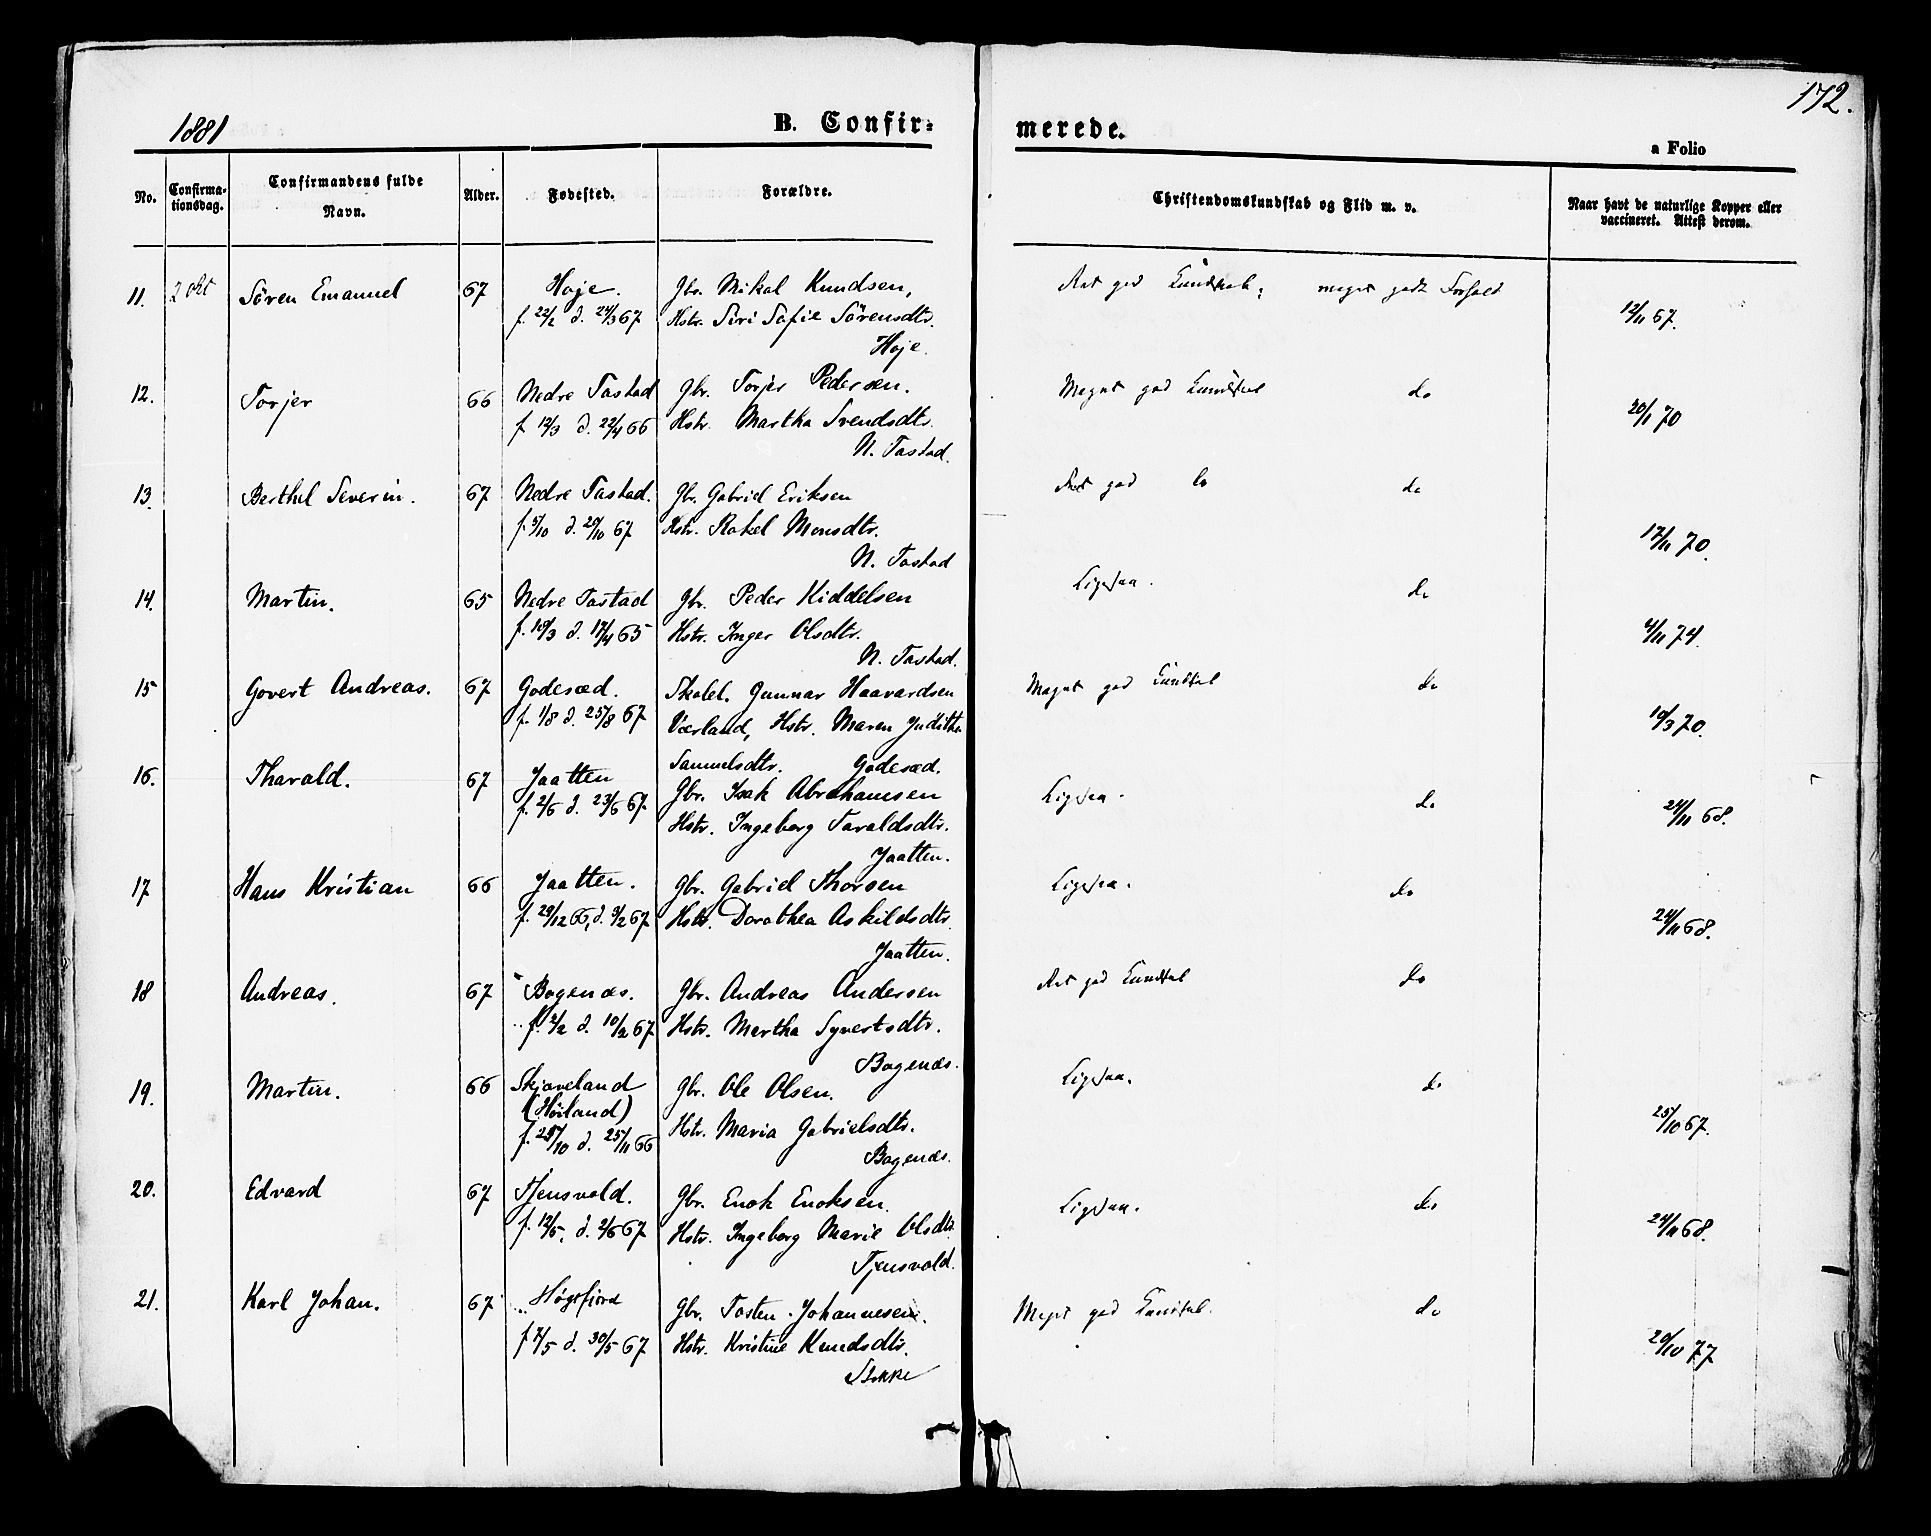 172.
1881
B. Confir-
merede.
a Folio
No.
Confirma-
tionsdag.
Confirmandens fulde
Navn.
Alder.
Fødested.
Forældre.
Christendomskundskab og Flid m. v.
Naar havt de naturlige Kopper eller
vaccineret. Attest derom.
11. 2 okt Sören Emanuel 67 Hoje. Gbr. Mikal Knudsen, Ret god Kundskab; meget godt Forhold
f. 22/2 d. 24/3 67 Hstr. Siri Sofie Sörensdtr. 12/11 67.
Hoje.
12. Torjer 66 Nedre Tastad Gbr. Torjer Pedersen. Meget god Kundskab do
f 12/3 d. 22/4 66 Hstr. Martha Svendsdtr. 20/1 70
N. Tastad.
13. Berthel Severin. 67 Nedre Tastad. Gbr. Gabriel Eriksen Ret god do do
f. 5/10 d. 20/10 67 Hstr. Rakel Monsdtr. 17/11 70.
N. Tastad
14. Martin. 65 Nedre Tastad Gbr. Peder Kiddelsen Ligesaa. do
f. 10/3 d. 17/4 65 Hstr. Inger Olsdtr. 4/11 74.
N. Tastad.
15 Govert Andreas. 67 Godesæd. Skolel. Gunnar Haavardsen Meget god Kundskab do
f. 1/8 d. 25/8 67 Værland, Hstr. Maren Judithe 10/3 70.
Samuelsdtr. Godesæd.
16. Tharald. 67 Jaatten Gbr. Isak Abrahamsen Ligesaa. do
f. 2/6 d. 23/6 67. Hstr. Ingeborg Taraldsdtr. 24/11 68.
Jaatten.
17 Hans Kristian 66 Jaatten. Gbr. Gabriel Thorsen Ligesaa. do
f. 29/12 66, d. 3/2 67 Hstr. Dorothea Askildsdtr. 24/11 68.
Jaatten.
18 Andreas. 67 Bogenæs. Gbr. Andreas Andersen Ret god Kundskab do
f. 2/2 d. 10/2 67 Hstr. Martha Syvertsdtr.
Bogenæs.
19. Martin. 66 Skjæveland Gbr. Ole Olsen. Ligesaa. do
(Höiland)
f. 25/10 d. 25/11 66 Hstr. Maria Gabrielsdtr. 25/10 67.
Bogenæs.
20. Edvard 67 Tjensvold. Gbr. Enok Enoksen. Ligesaa. do
f. 12/5, d. 2/6 67 Hstr. Ingeborg Marie Olsdtr. 24/11 68.
Tjensvold.
21. Karl Johan. 67 Høgsfjord Gbr. Tosten Johannesen. Meget god Kundskab. do
f 7/5 d. 30/5 67 Hstr. Kristine Knudsdtr. 20/10 77